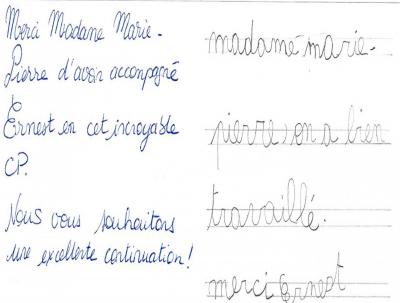 Merci Madame Marie-
Pierre d'avoir accompagné
Ernest en cet incroyable
CP.
Nous vous souhaitons
une excellente continuation!
madame marie-
pierre, on a bien
travaillé.
merci Ernest